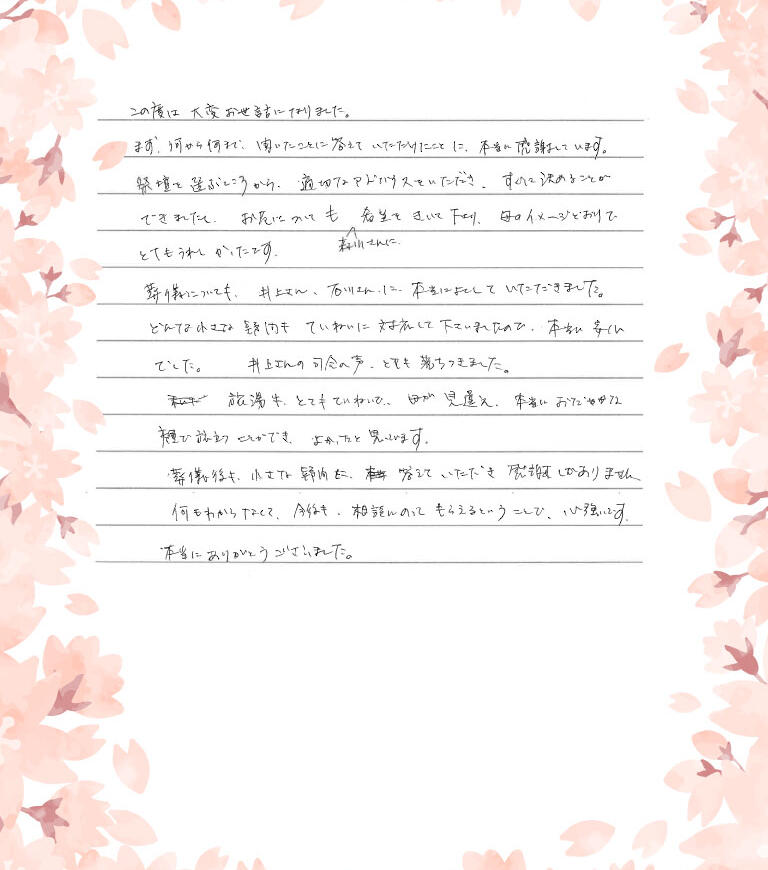 この度は大変お世話になりました。
まず、何から何まで、聞いたことに答えていただけたことに、本当に感謝しています。
祭壇を選ぶところから、適切なアドバイスをいただき、すぐに決めることが
できましたし、お花についても 希望をきいて下さり、母のイメージどおりで
森川さんに
とてもうれしかったです。
葬儀についても、井上さん、石川さんに本当によくして いただきました。
どんな小さな疑問も ていねいに対応して下さいましたので、本当に安心
でした。 井上さんの司会の声、とても落ちつきました。
故湯も、とてもていねいで、母が見違え、本当におだやかな
顔で旅立つことができ、よかったと思います。
葬儀後も、小さな疑問に、答えていただき 感謝しかありません
何もわからなくて、今後も、相談にのってもらえるということで、心強いです。
本当にありがとうございました。